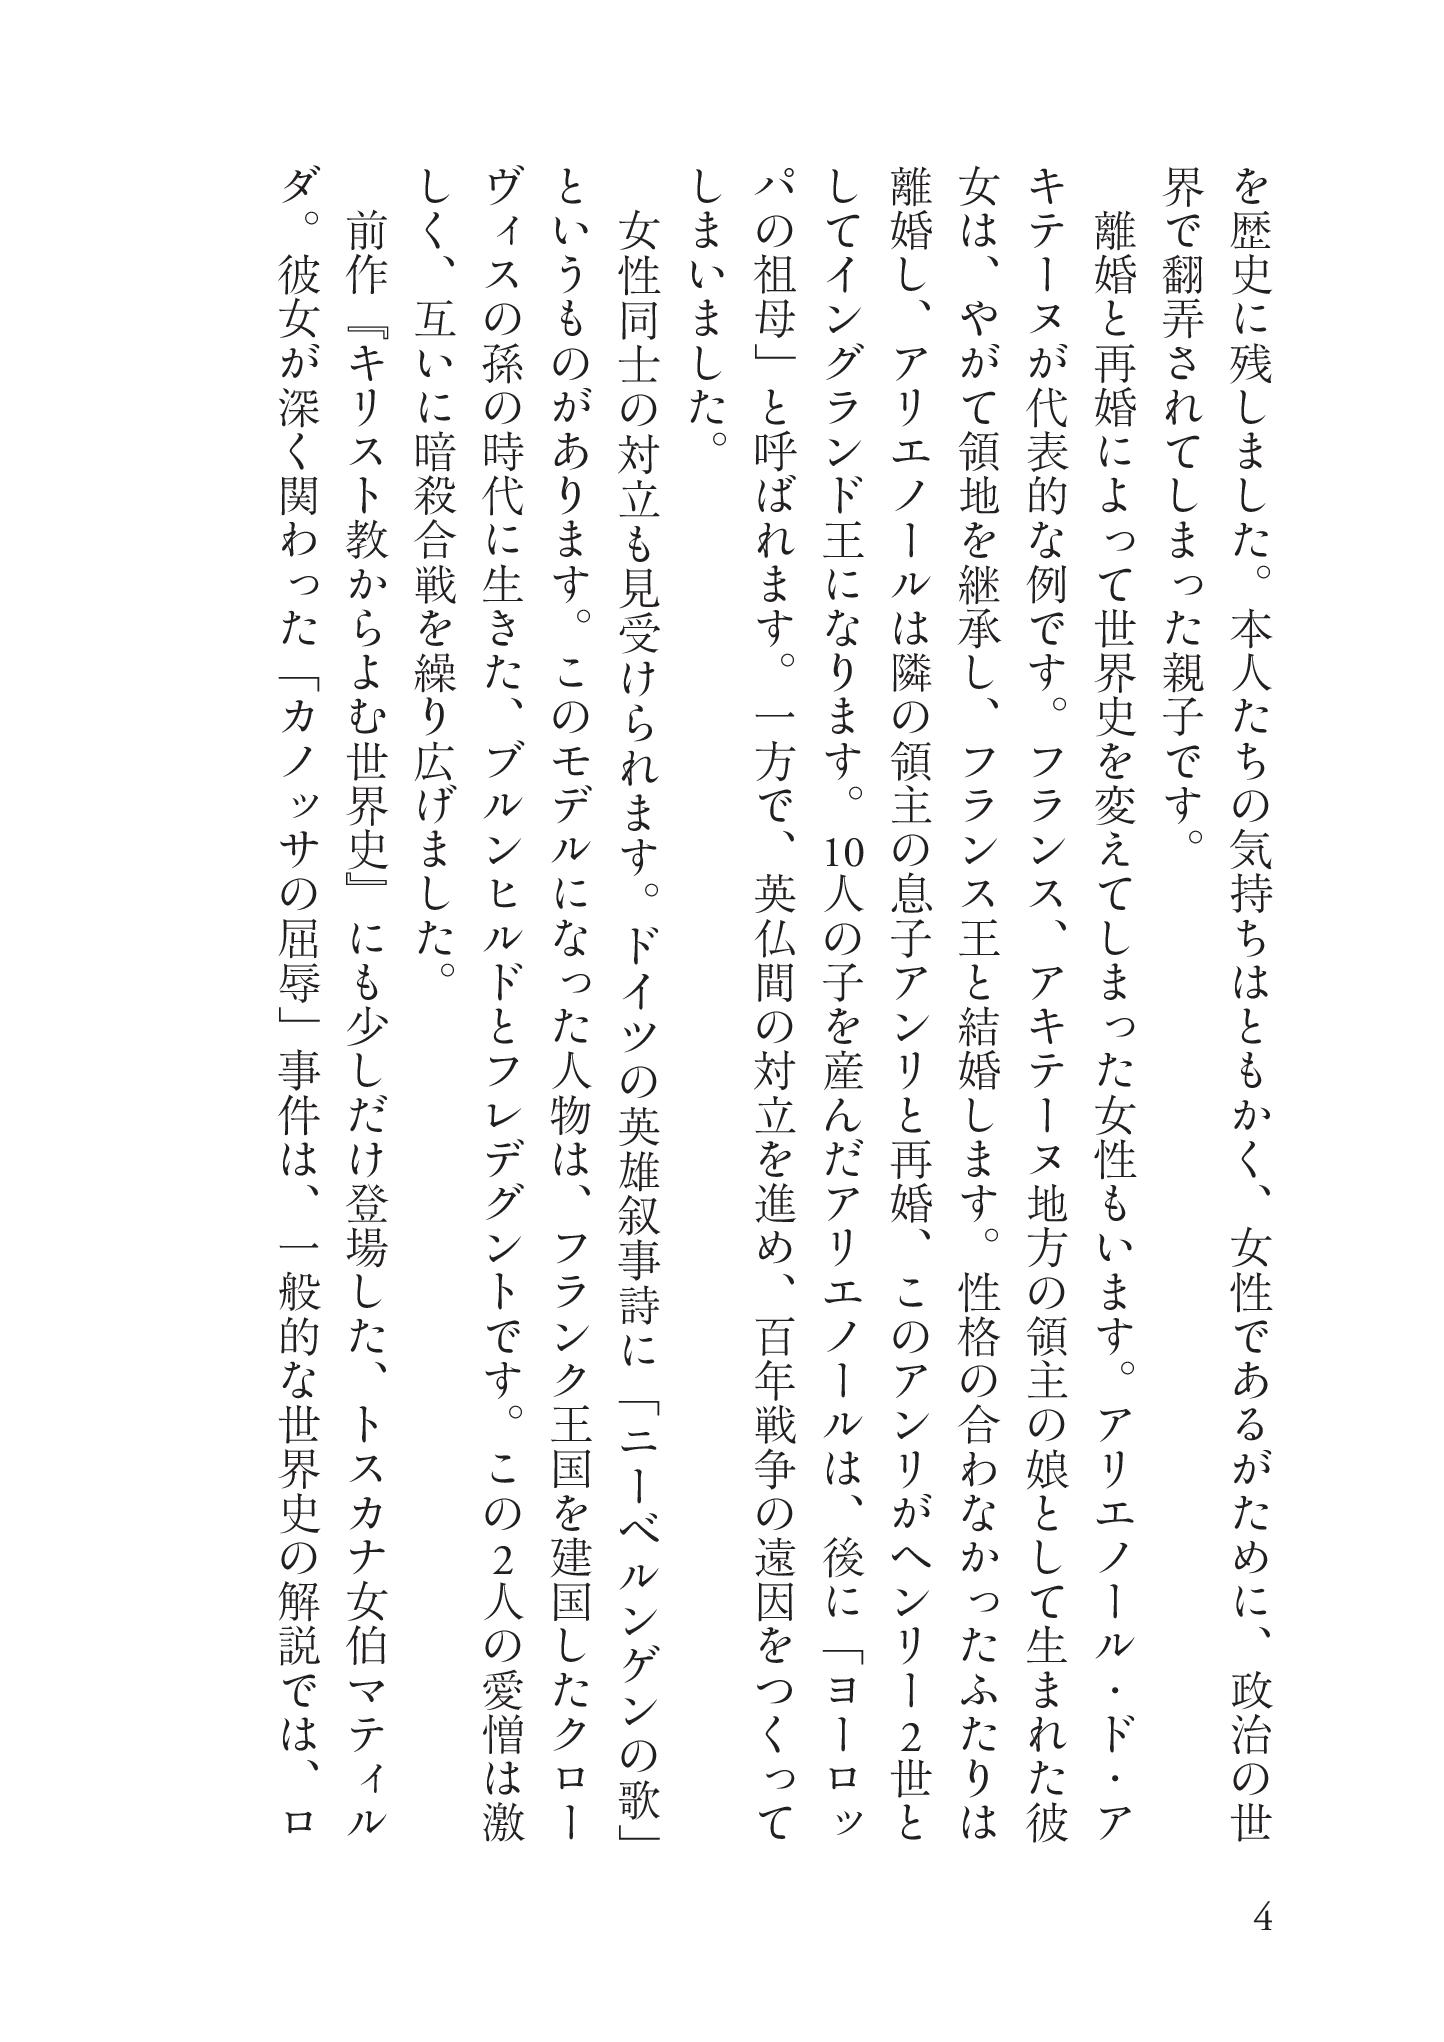 を歴史に残しました。本人たちの気持ちはともかく、女性であるがために、政治の世
界で翻弄されてしまった親子です。
離婚と再婚によって世界史を変えてしまった女性もいます。アリエノール・ド・ア
キテーヌが代表的な例です。フランス、アキテーヌ地方の領主の娘として生まれた彼
女は、やがて領地を継承し、フランス王と結婚します。性格の合わなかったふたりは
離婚し、アリエノールは隣の領主の息子アンリと再婚、このアンリがヘンリー2世と
してイングランド王になります。10人の子を産んだアリエノールは、後に「ヨーロッ
パの祖母」と呼ばれます。一方で、英仏間の対立を進め、百年戦争の遠因をつくって
しまいました。
女性同士の対立も見受けられます。ドイツの英雄叙事詩に「ニーベルンゲンの歌」
というものがあります。このモデルになった人物は、フランク王国を建国したクロー
ヴィスの孫の時代に生きた、ブルンヒルドとフレデグントです。この2人の愛憎は激
しく、互いに暗殺合戦を繰り広げました。
前作『キリスト教からよむ世界史』にも少しだけ登場した、トスカナ女伯マティル
ダ。彼女が深く関わった「カノッサの屈辱」事件は、一般的な世界史の解説では、ロ
4